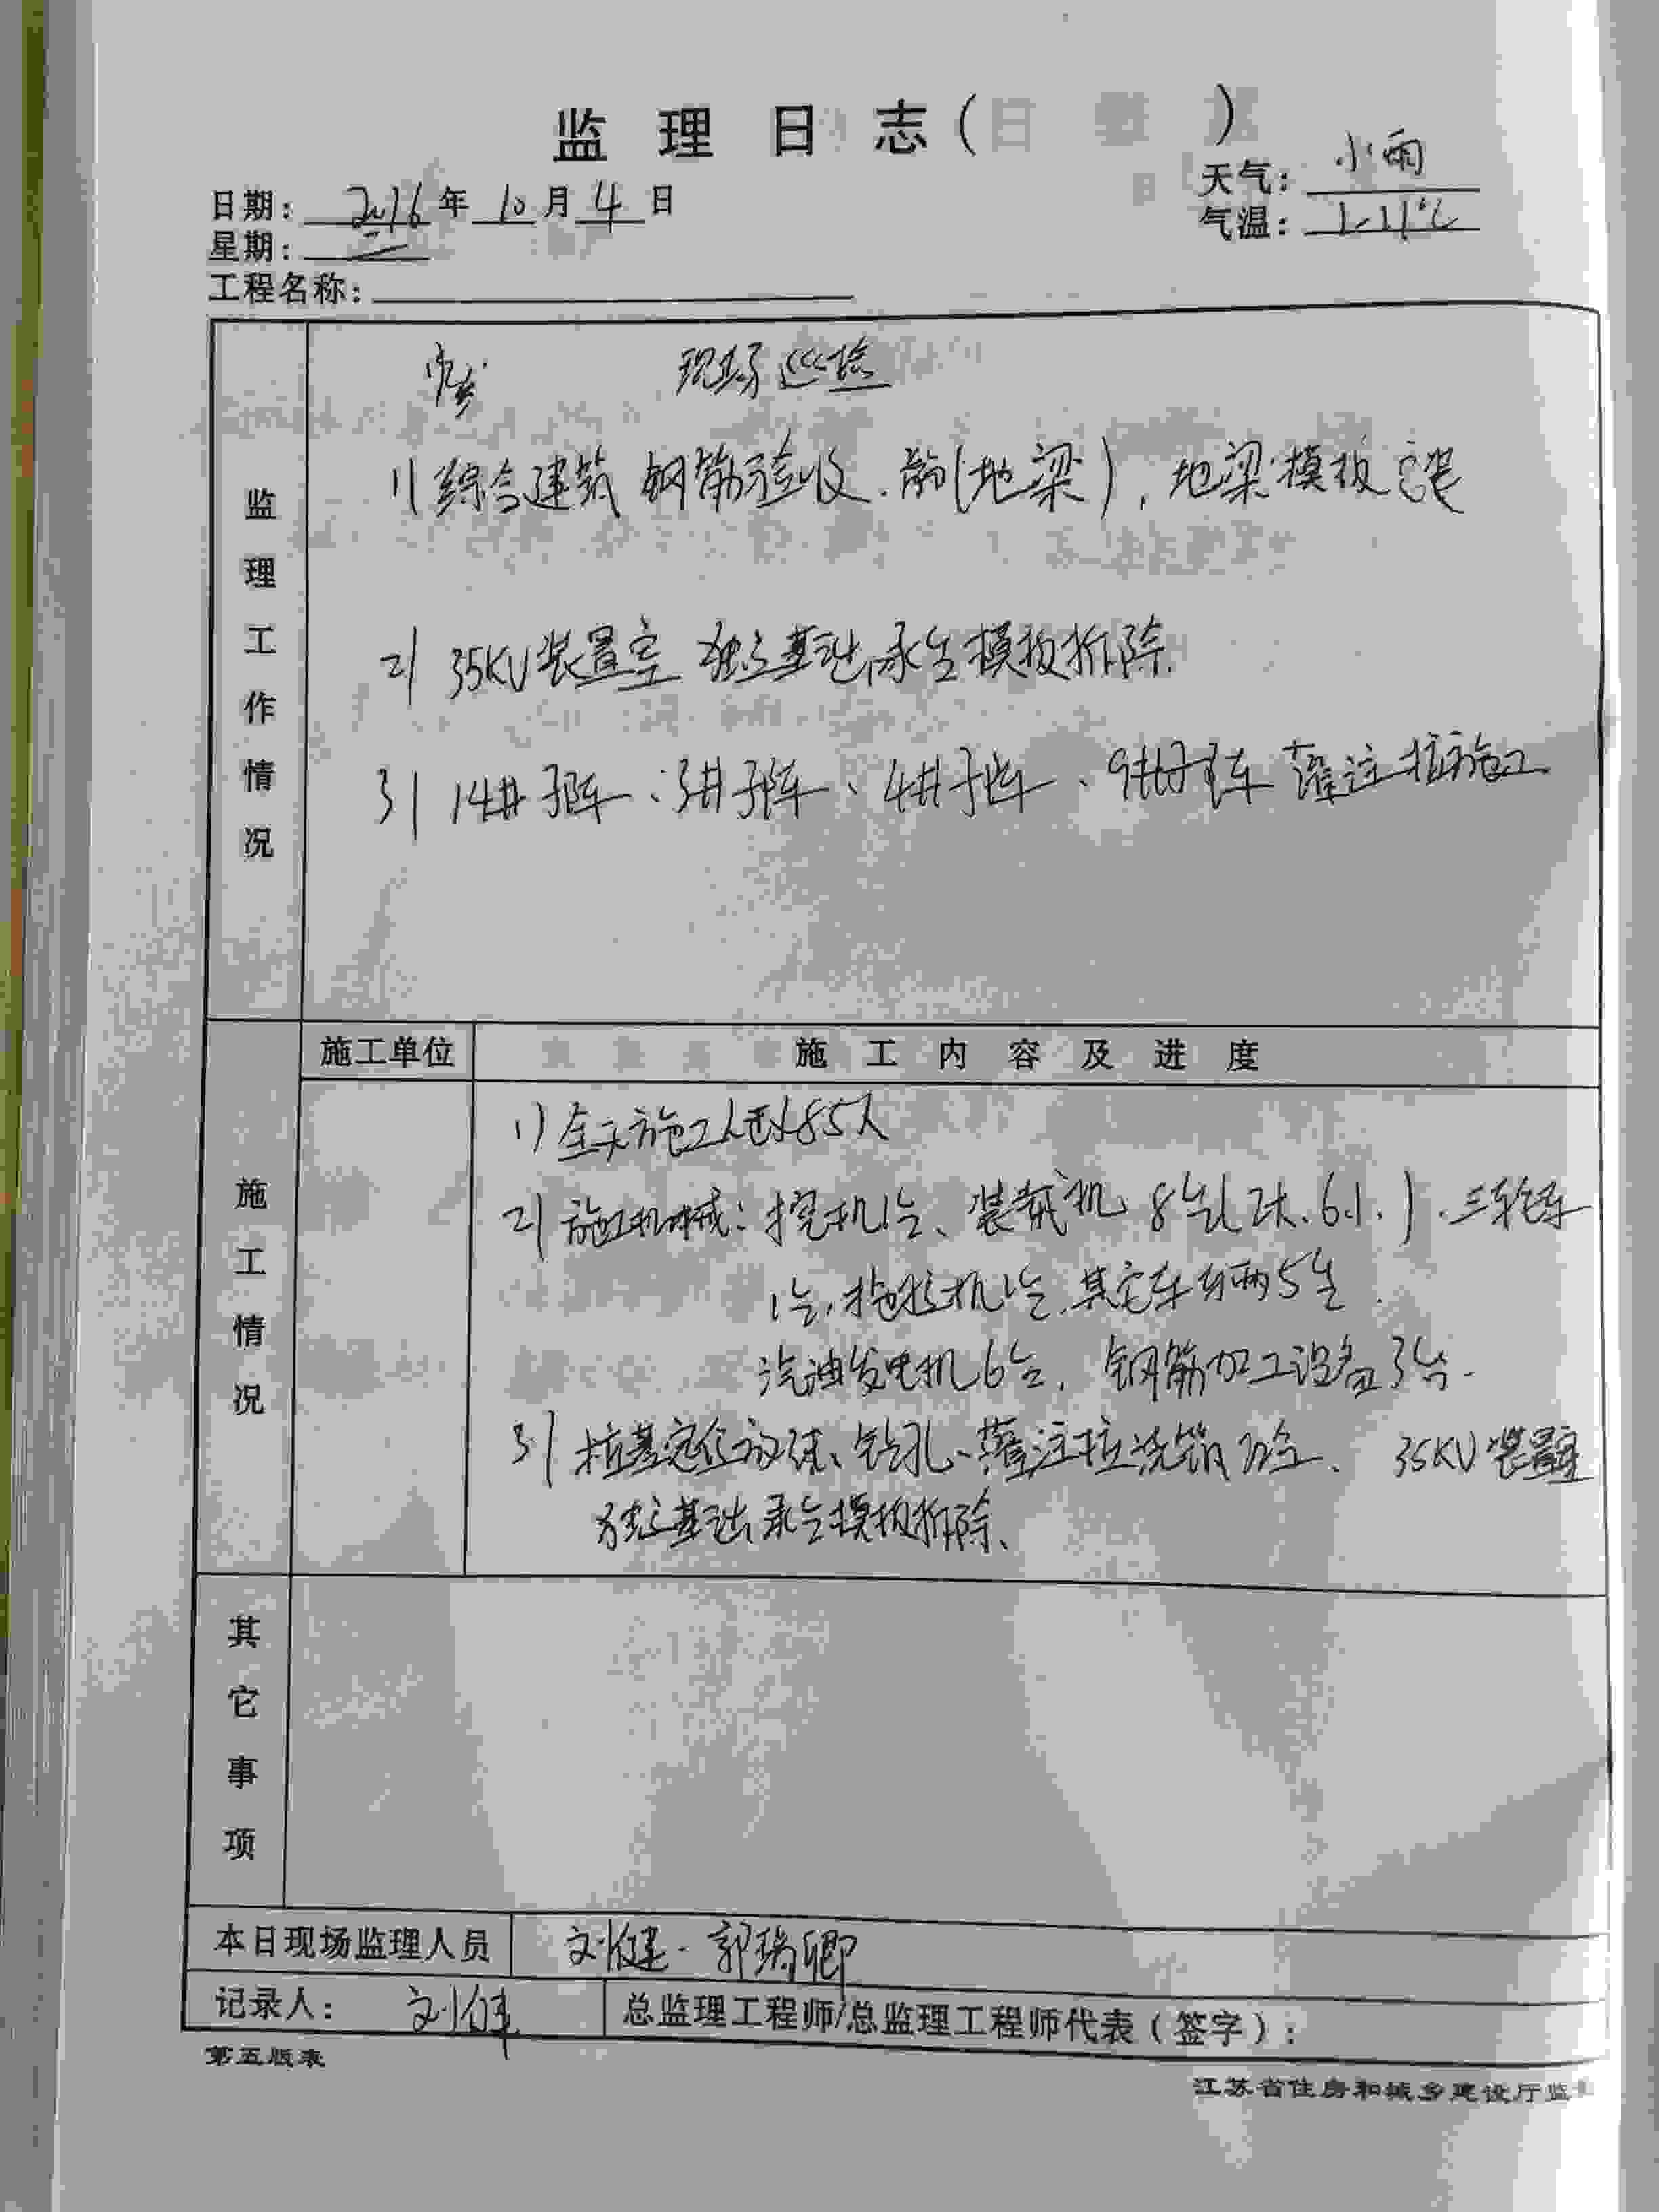 监理日志( )
日期: 2016 年 10 月 4 日
天气: 小雨
星期: 二
气温: 1-11℃
工程名称:
现场巡检
监理工作情况
1) 综合建筑 钢筋验收. (地梁), 地梁模板安装
2) 35KV装置室 独立基础承台模板拆除.
3) 14#子阵、3#子阵、4#子阵、9#子阵 灌注桩施工.
施工单位
施工内容及进度
施工情况
1) 全天施工人员185人
2) 施工机械: 挖机1台、装载机 8台(2大.6小.). 三轮车
1台, 拖拉机1台, 其它车车辆5台.
汽油发电机6台, 钢筋加工设备3台.
3) 桩基定位放线、钻孔、灌注桩浇筑 、 35KV装置室
独立基础承台模板拆除、
其它事项
本日现场监理人员
刘健. 郭瑞卿
记录人: 刘健
总监理工程师/总监理工程师代表(签字):
第五版表
江苏省住房和城乡建设厅监